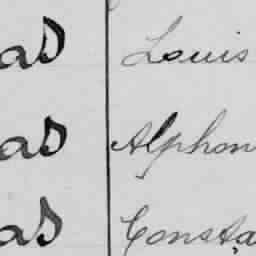 as Louis
as Alphon
as Consta